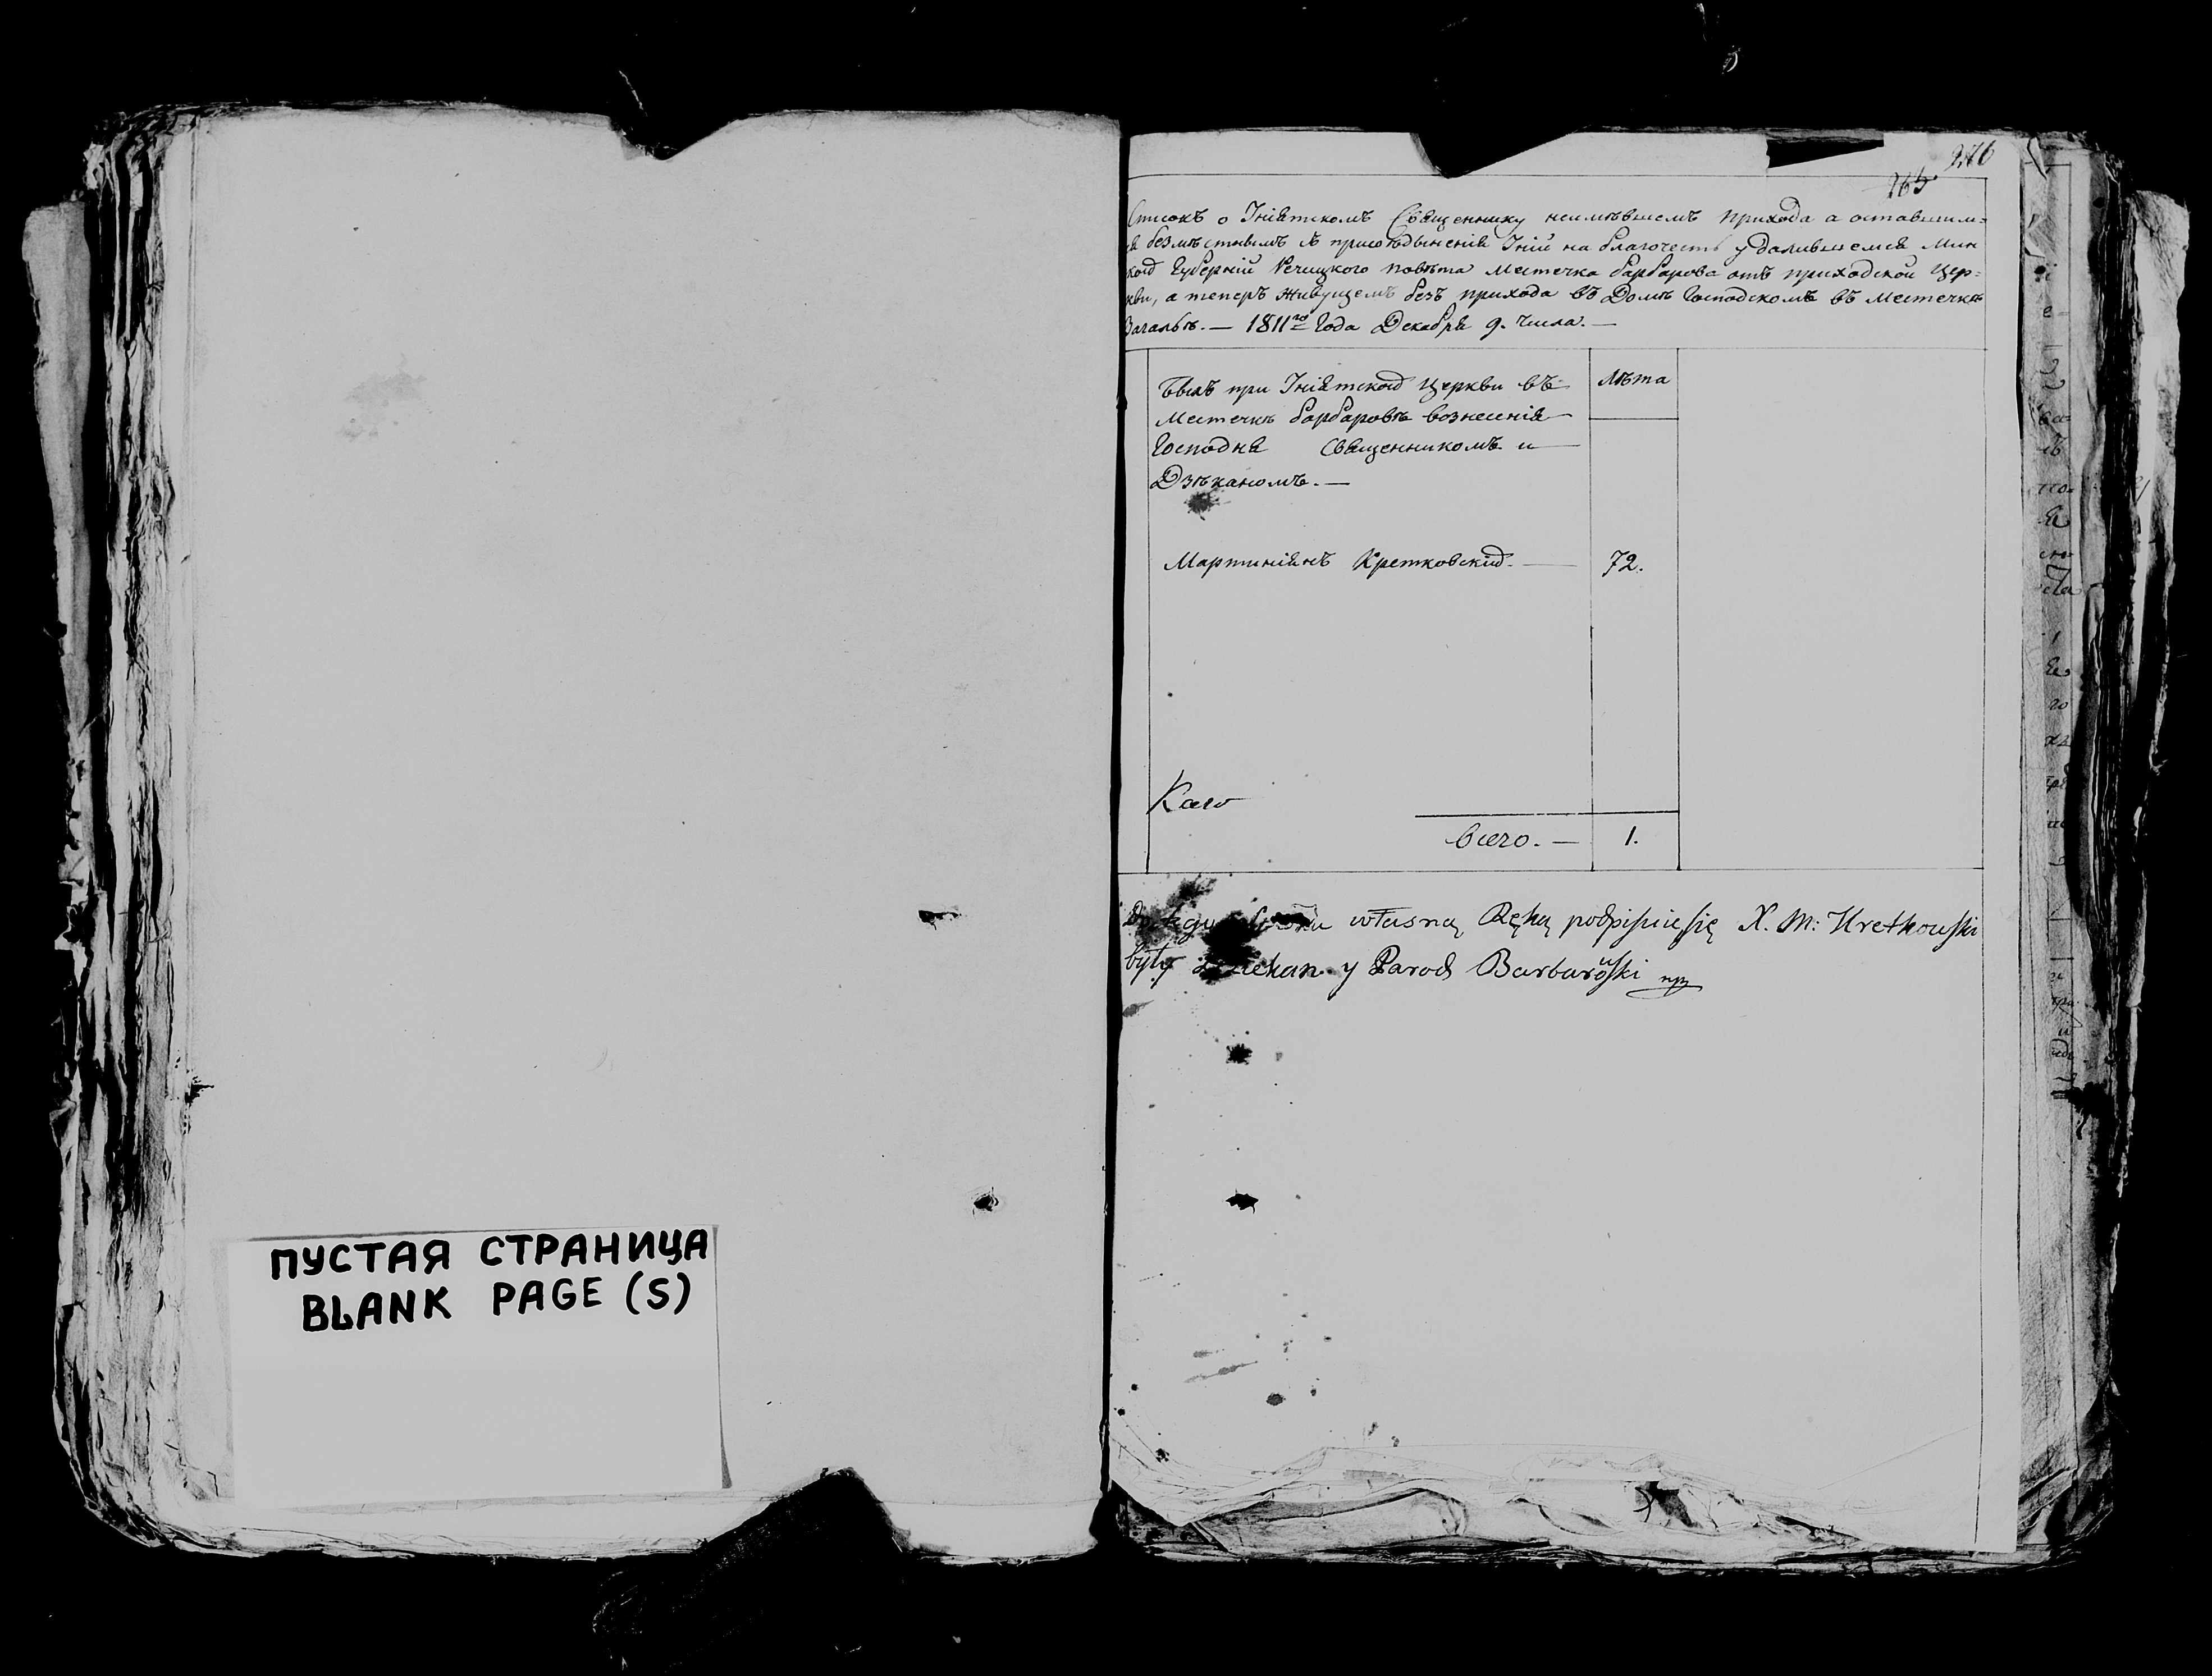 ПУСТАЯ СТРАНИЦА
BLANK PAGE (S)
276
265.
Списокъ о Уніятскомъ Священнику неимѣвшемъ прихода а оставшим=
ся безмѣстнымъ съ присоѣдыненія Уній на благочесть удалившемся Мин
кой Губерній Речицкого повѣта Местечка Барбарова отъ приходской Цер=
кви, а теперъ живущемъ безъ прихода въ Домѣ Господскомъ въ Местечкѣ
Загальѣ. — 1811го Года Декабря 9. числа. —
Былъ при Уніятской Церкви въ
Местечкѣ Барбаровѣ Вознесенія
Господня Священникомъ и
Дзѣканомъ. —
Лѣта
Мартиніянъ Кретковскій. —
72.
Всего. —
1.
własną Ręką podpisuię się X. M: Kretkowski
były Dziekan y Paroch Barbarowski mp